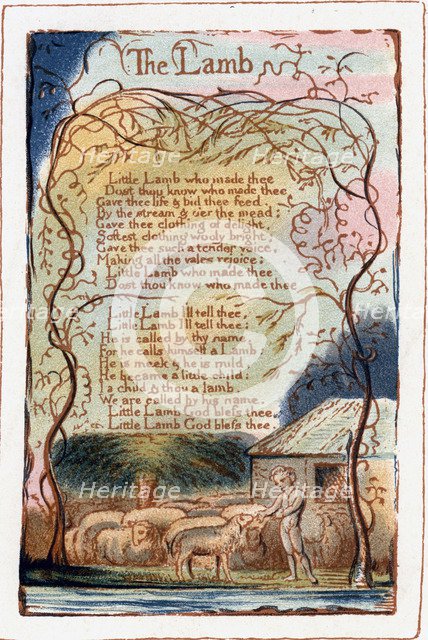 The Lamb
Heritage Heritage Heritage
Little Lamb who made thee
Dost thou know who made thee
Gave thee life & bid thee feed.
By the stream & o'er the mead;
Gave thee clothing of delight,
Softest clothing wooly bright;
Gave thee such a tender voice,
Making all the vales rejoice:
Little Lamb who made thee
Dost thou know who made thee
Heritage Heritage
Little Lamb I'll tell thee,
Little Lamb I'll tell thee;
He is called by thy name,
For he calls himself a Lamb:
He is meek & he is mild,
He became a little child:
I a child & thou a lamb,
We are called by his name.
Little Lamb God bless thee.
Little Lamb God bless thee.
Heritage Heritage Heritage